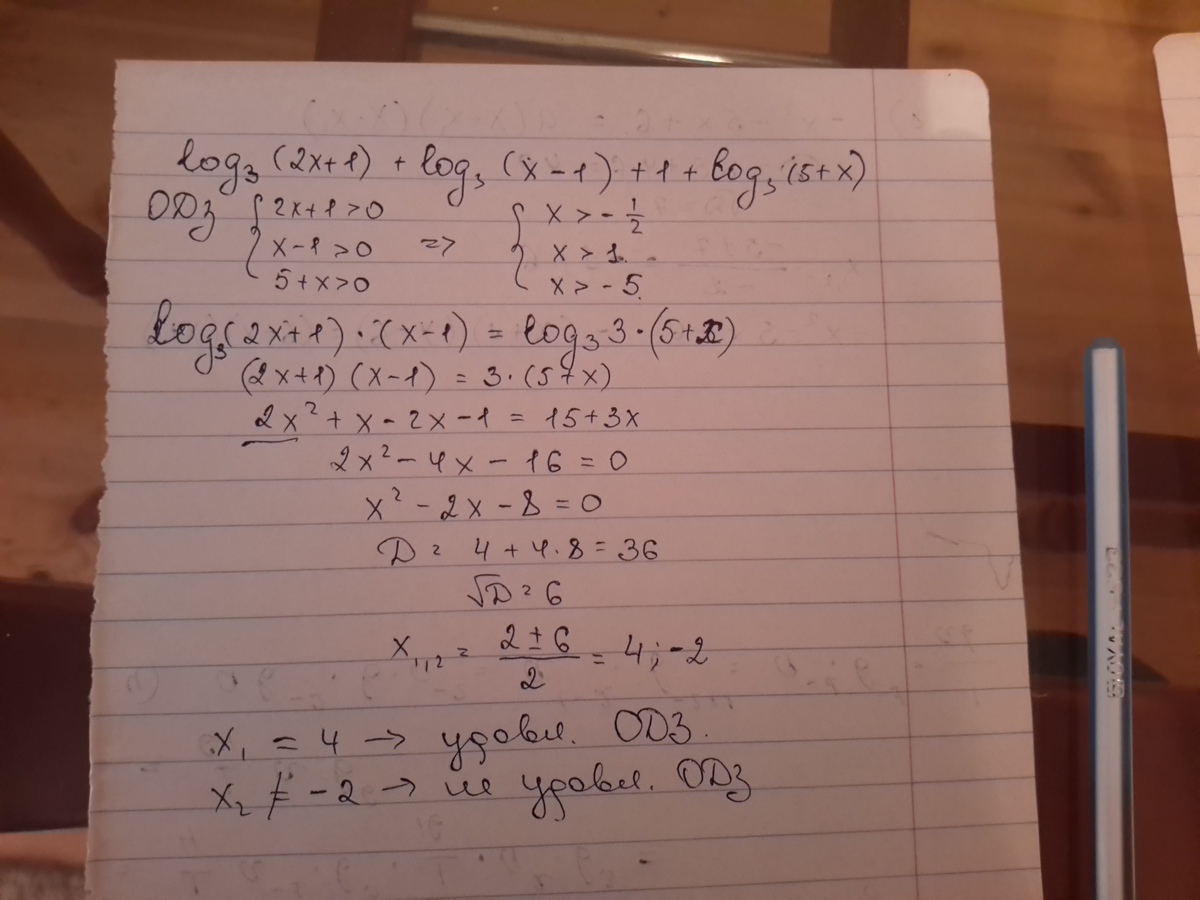 log₃ (2x+1) + log₃ (x-1) + 1 + log₃ (5+x)
ОДЗ { 2x+1>0 { x > - 1/2
x-1>0 => x > 1
5+x>0 x > - 5
log₃(2x+1)·(x-1) = log₃ 3·(5+x)
(2x+1) (x-1) = 3·(5+x)
2x² + x - 2x - 1 = 15+3x
2x² - 4x - 16 = 0
x² - 2x - 8 = 0
D = 4 + 4·8 = 36
√D = 6
x₁,₂ = (2 ± 6)/2 = 4; -2
x₁ = 4 → удовл. ОДЗ.
x₂ ≠ -2 → не удовл. ОДЗ